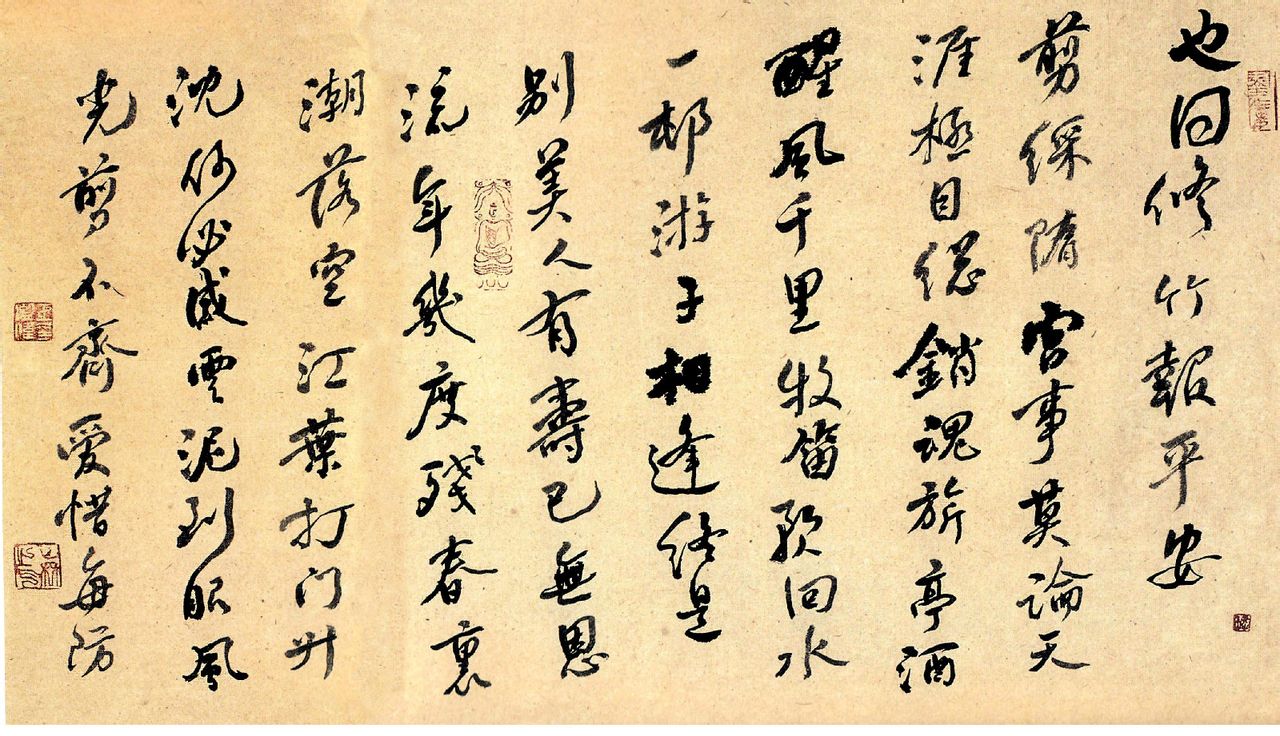 也同修竹報平安
剪綵隋宮事莫論天
涯極目總銷魂旅亭酒
醒風千里牧笛歌回水
一邨游子相逢終是
別美人有壽已無恩
流年幾度殘春裏
潮落空江葉打門艸
沈何必感雲泥到眼風
光剪不齊愛惜每防